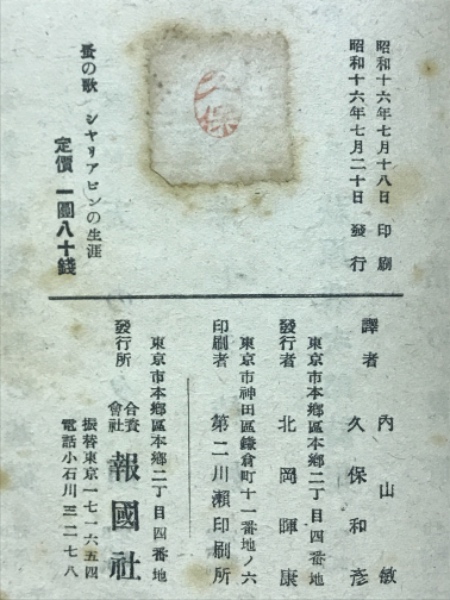 昭和十六年七月十八日 印刷
昭和十六年七月二十日 發行
久保
蚤の歌 シヤリアピンの生涯
定價 一圓八十錢
譯者 內山敏
久保和彥
東京市本鄕區本鄕二丁目四番地
發行者 北岡暉康
東京市神田區鎌倉町十一番地ノ六
印刷者 第二川瀨印刷所
東京市本鄕區本鄕二丁目四番地
發行所 合資會社 報國社
振替東京一七一六五四
電話小石川三二七八